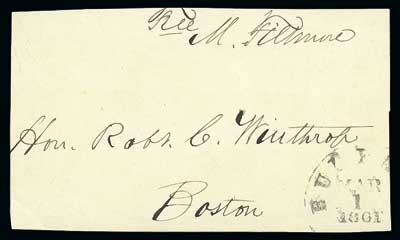 Free
M. Fillmore
Hon. Robt. C. Winthrop
Boston
BUFF
MAR
1
1861